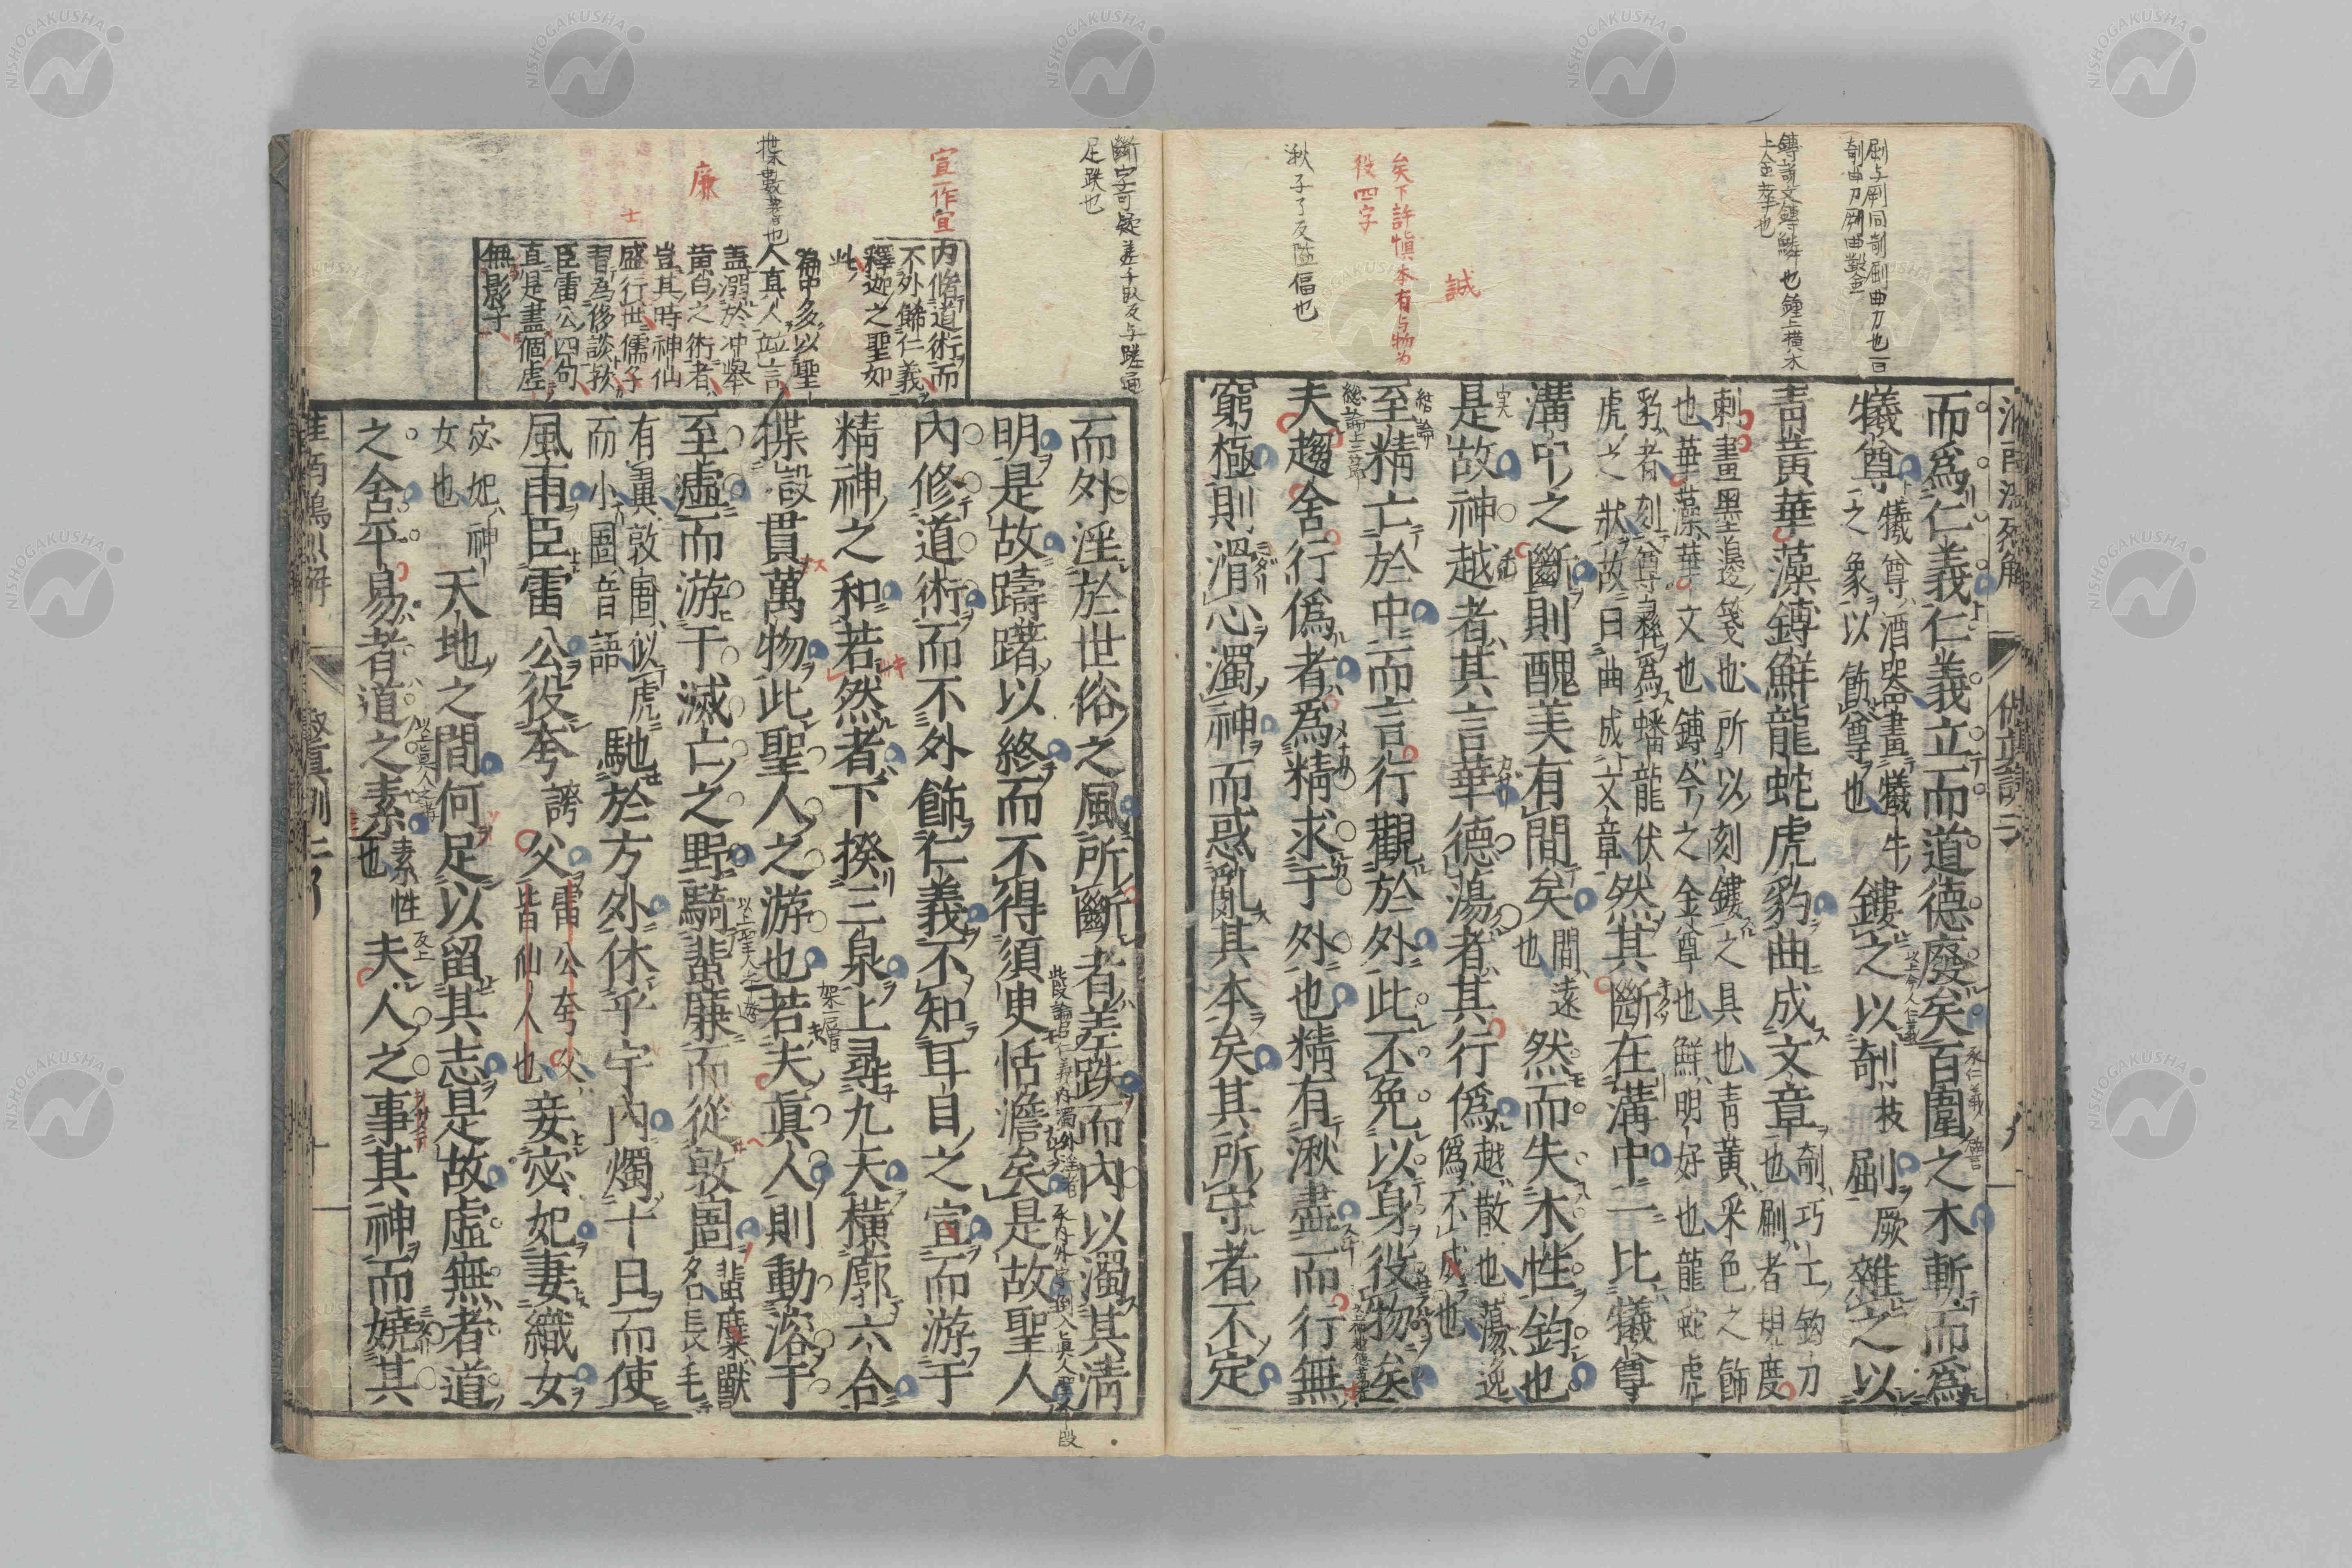 而爲仁義仁義立而道德廢矣百圍之木斬而爲
犧尊犧尊酒器畫犧牛之象以飾尊也鏤之以剞枝劂厥雜之以
青黃華藻鎛鮮龍蛇虎豹曲成文章剞巧工鈎刀也劂者規度
刺畫墨邊箋也所以刻鏤之具也青黃采色之飾
也華藻華文也鎛今之金尊也鮮明好也龍蛇虎
豹者刻尊彝爲蟠龍伏虎之狀故曰曲成文章然其斷在溝中二比犧尊
溝中之斷則醜美有間矣間遠也然而失木性鈞也
是故神越者其言華德蕩者其行僞越散也蕩逸僞不成也
至精亡於中而言行觀於外此不免以身役物矣
夫趨舍行僞者爲精求于外也精有湫盡而行無
窮極則滑心濁神而惑亂其本矣其所守者不定
剞曲刀劂曲鑿
誠
矣下許愼本有与物为
役四字
湫子了反隘偪也
而外淫於世俗之風所斷者差跌而內以濁其淸
明是故躊躇以終而不得須臾恬澹矣是故聖人
內修道術而不外飾仁義不知耳目之宣而游于
精神之和若然者下揆三泉上尋九天橫廓六合
揲設貫萬物此聖人之游也若夫眞人則動溶于
至虛而游于滅亡之野騎蜚廉而從敦圄蜚廉獸名長毛
有翼敦圄似虎而小圄音語馳於方外休乎宇內燭十日而使
風雨臣雷公役夸誇父雷公夸父皆仙人也妾宓妃妻織女
宓妃神女也天地之間何足以留其志是故虛無者道
之舍平易者道之素素性也夫人之事其神而嬈其
斷字可疑差千以反与蹉通
足跌也
宣一作宜
內脩道術而
不外餙仁義
釋迦之聖如
此
篇中多以聖
人真人竝言
盖溺於冲舉
黄白之術者
豈其時神仙
盛行世儒子
習爲侈談欤
臣雷公四句
直是盡個虛
無影子
揲數蓍也
廉